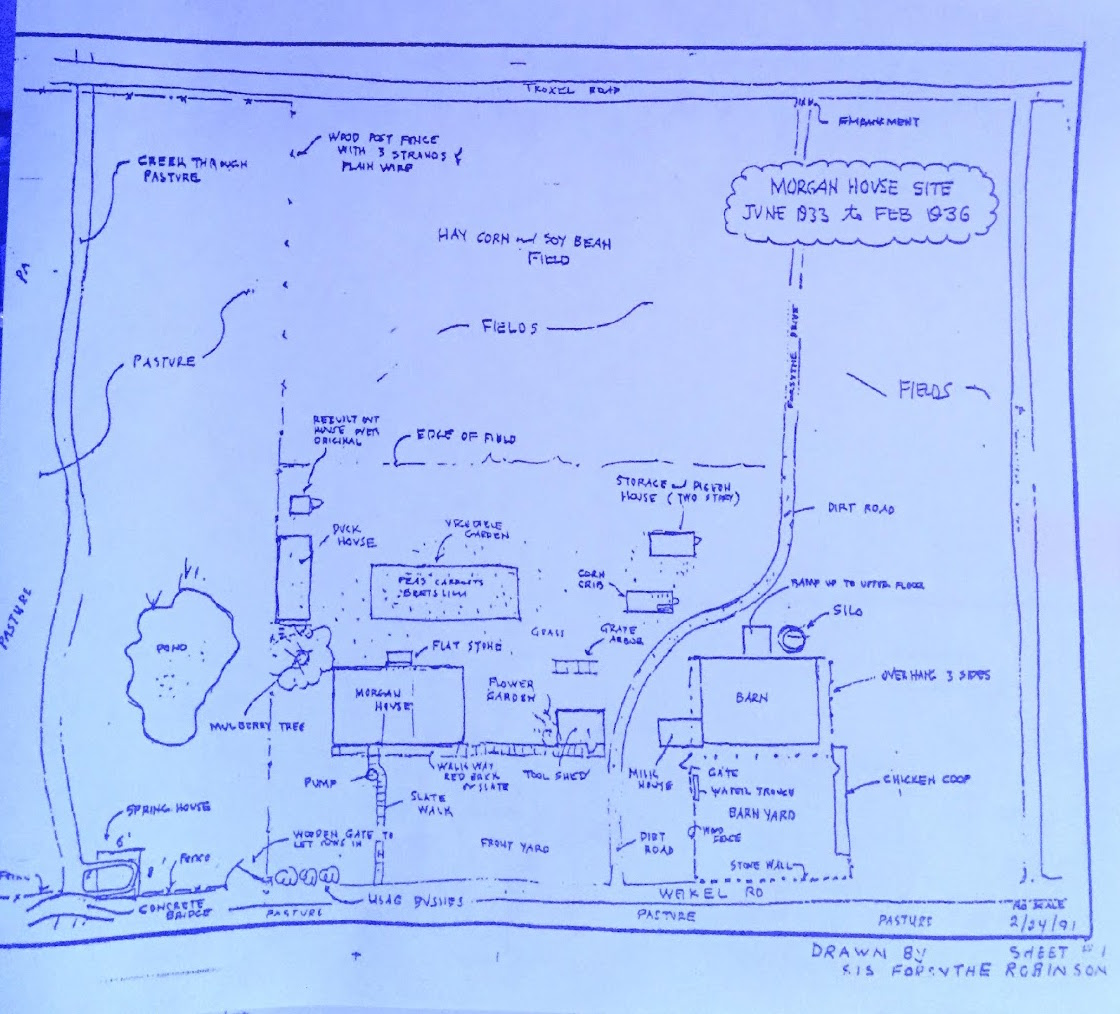 TROXEL ROAD
EMBANKMENT
WOOD POST FENCE
WITH 3 STRANDS of
PLAIN WIRE
CREEK THROUGH
PASTURE
MORGAN HOUSE SITE
JUNE 1933 to FEB 1936
HAY CORN and SOY BEAN
FIELD
PA
FIELDS
FORSYTHE DRIVE
PASTURE
FIELDS
REBUILT OUT
HOUSE OVER
ORIGINAL
EDGE OF FIELD
STORAGE and PIGEON
HOUSE (TWO STORY)
DIRT ROAD
DUCK
HOUSE
VEGETABLE
GARDEN
PEAS CARROTS
BEETS LIMA
CORN
CRIB
RAMP UP TO UPPER FLOOR
SILO
PASTURE
POND
GRASS
GRAPE
ARBOR
FLAT STONE
FLOWER
GARDEN
MORGAN
HOUSE
BARN
OVERHANG 3 SIDES
MULBERRY TREE
PUMP
WALKWAY
RED BRICK
or SLATE
TOOL SHED
MILK
HOUSE
GATE
WATER TROUGH
CHICKEN COOP
SLATE
WALK
BARN YARD
SPRING HOUSE
6'
8'
WOODEN GATE TO
LET COWS IN
FENCE
FRONT YARD
DIRT
ROAD
WOOD
FENCE
STONE WALL
WEIKEL RD
CONCRETE
BRIDGE
BUSHES
PASTURE
PASTURE
PASTURE
NO SCALE
2/24/91
DRAWN BY SHEET #1
SIS FORSYTHE ROBINSON